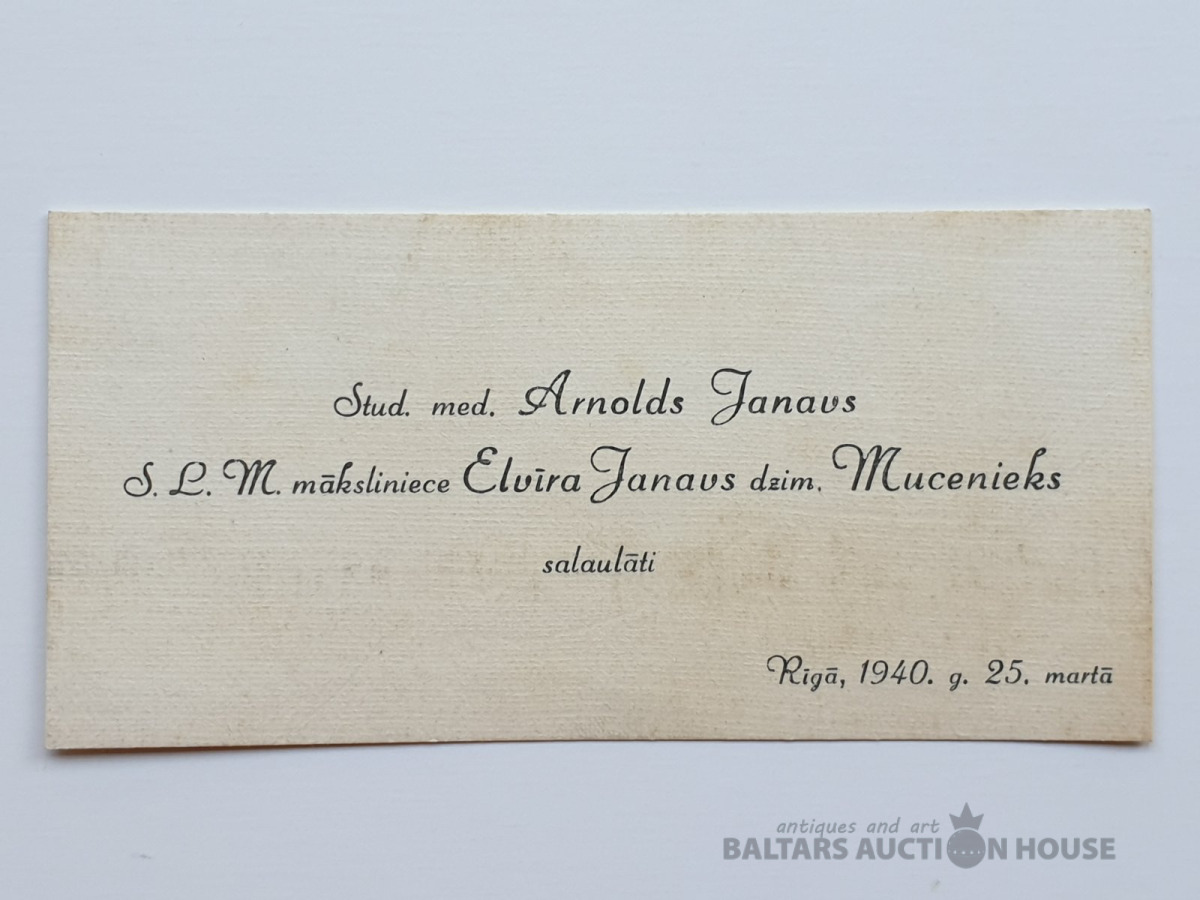 Stud. med. Arnolds Janavs
S. L. M. māksliniece Elvīra Janavs dzim. Mucenieks
salaulāti
Rīgā, 1940. g. 25. martā
antiques and art
BALTARS AUCTION HOUSE